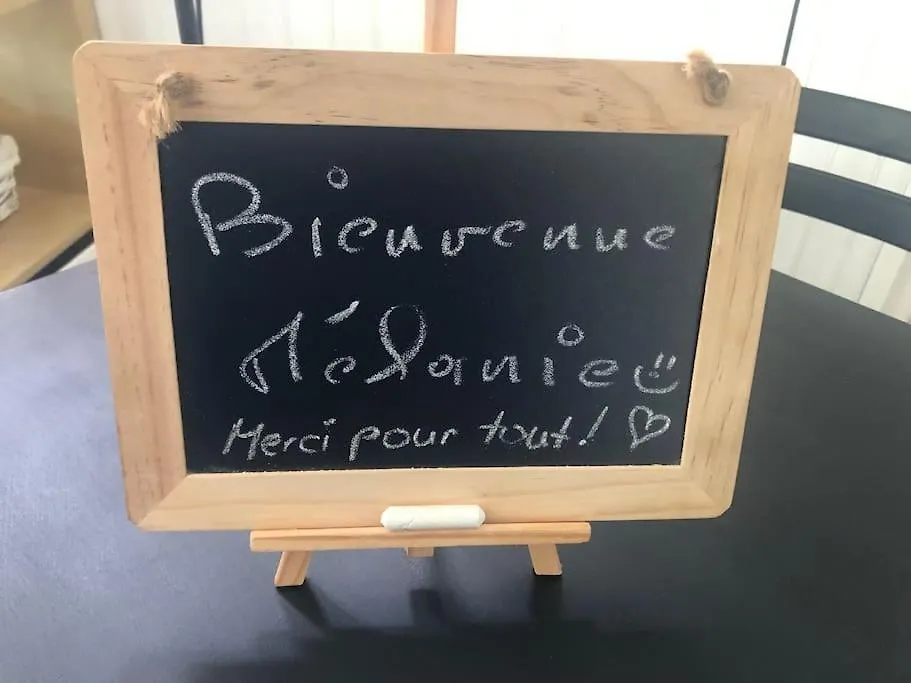 Bienvenue
Mélanie
Merci pour tout!